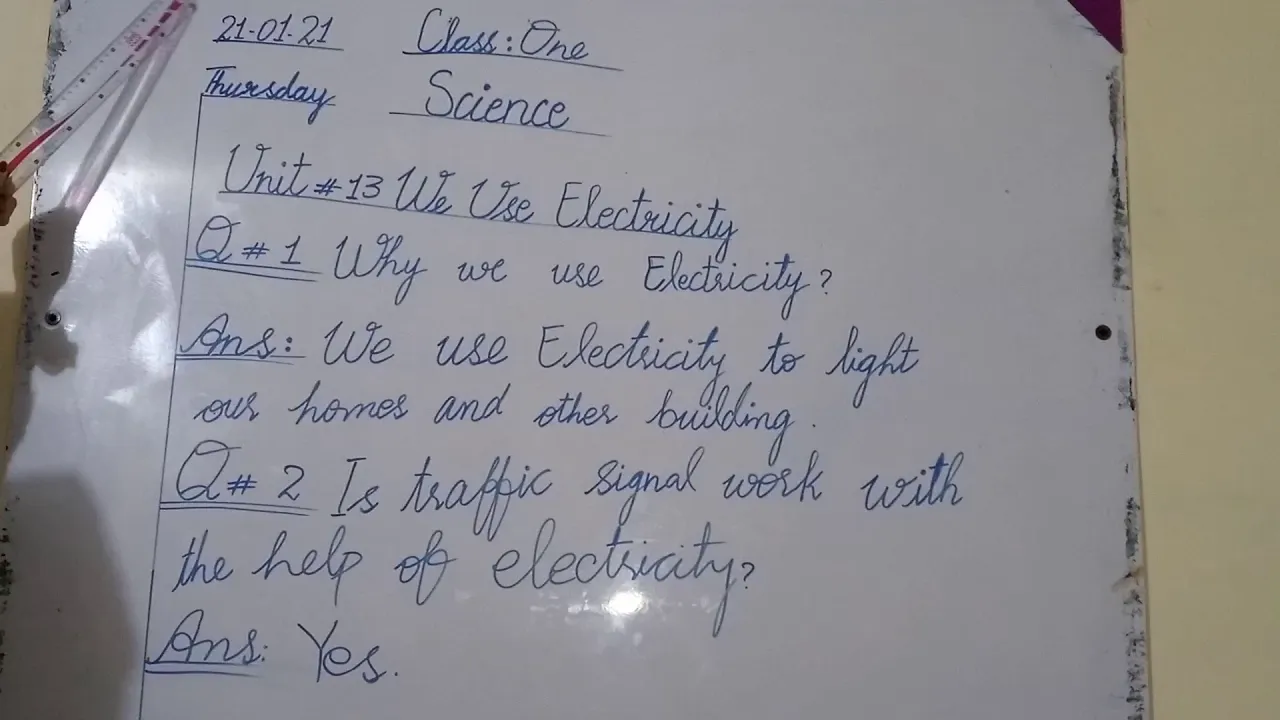 21-01-21 Class: One
Thursday Science
Unit # 13 We Use Electricity
Q # 1 Why we use Electricity?
Ans: We use Electricity to light
our homes and other building.
Q # 2 Is traffic signal work with
the help of electricity?
Ans: Yes.